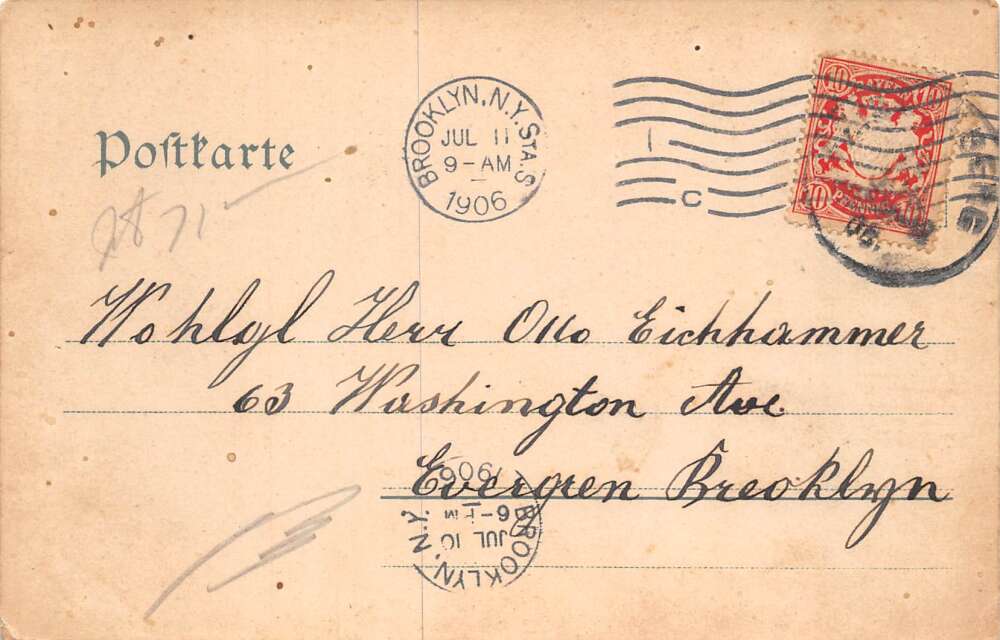 Postkarte
BROOKLYN, N.Y. STA. S
JUL 11
9-AM
1906
1
C
10 BAYERN 10
10 PFENNIG 10
BERG
06.
Wohlgl Herr Otto Eichhammer
63 Washington Ave.
Evergren Breoklyn
BROOKLYN, N.Y.
JUL 10
6-PM
1906